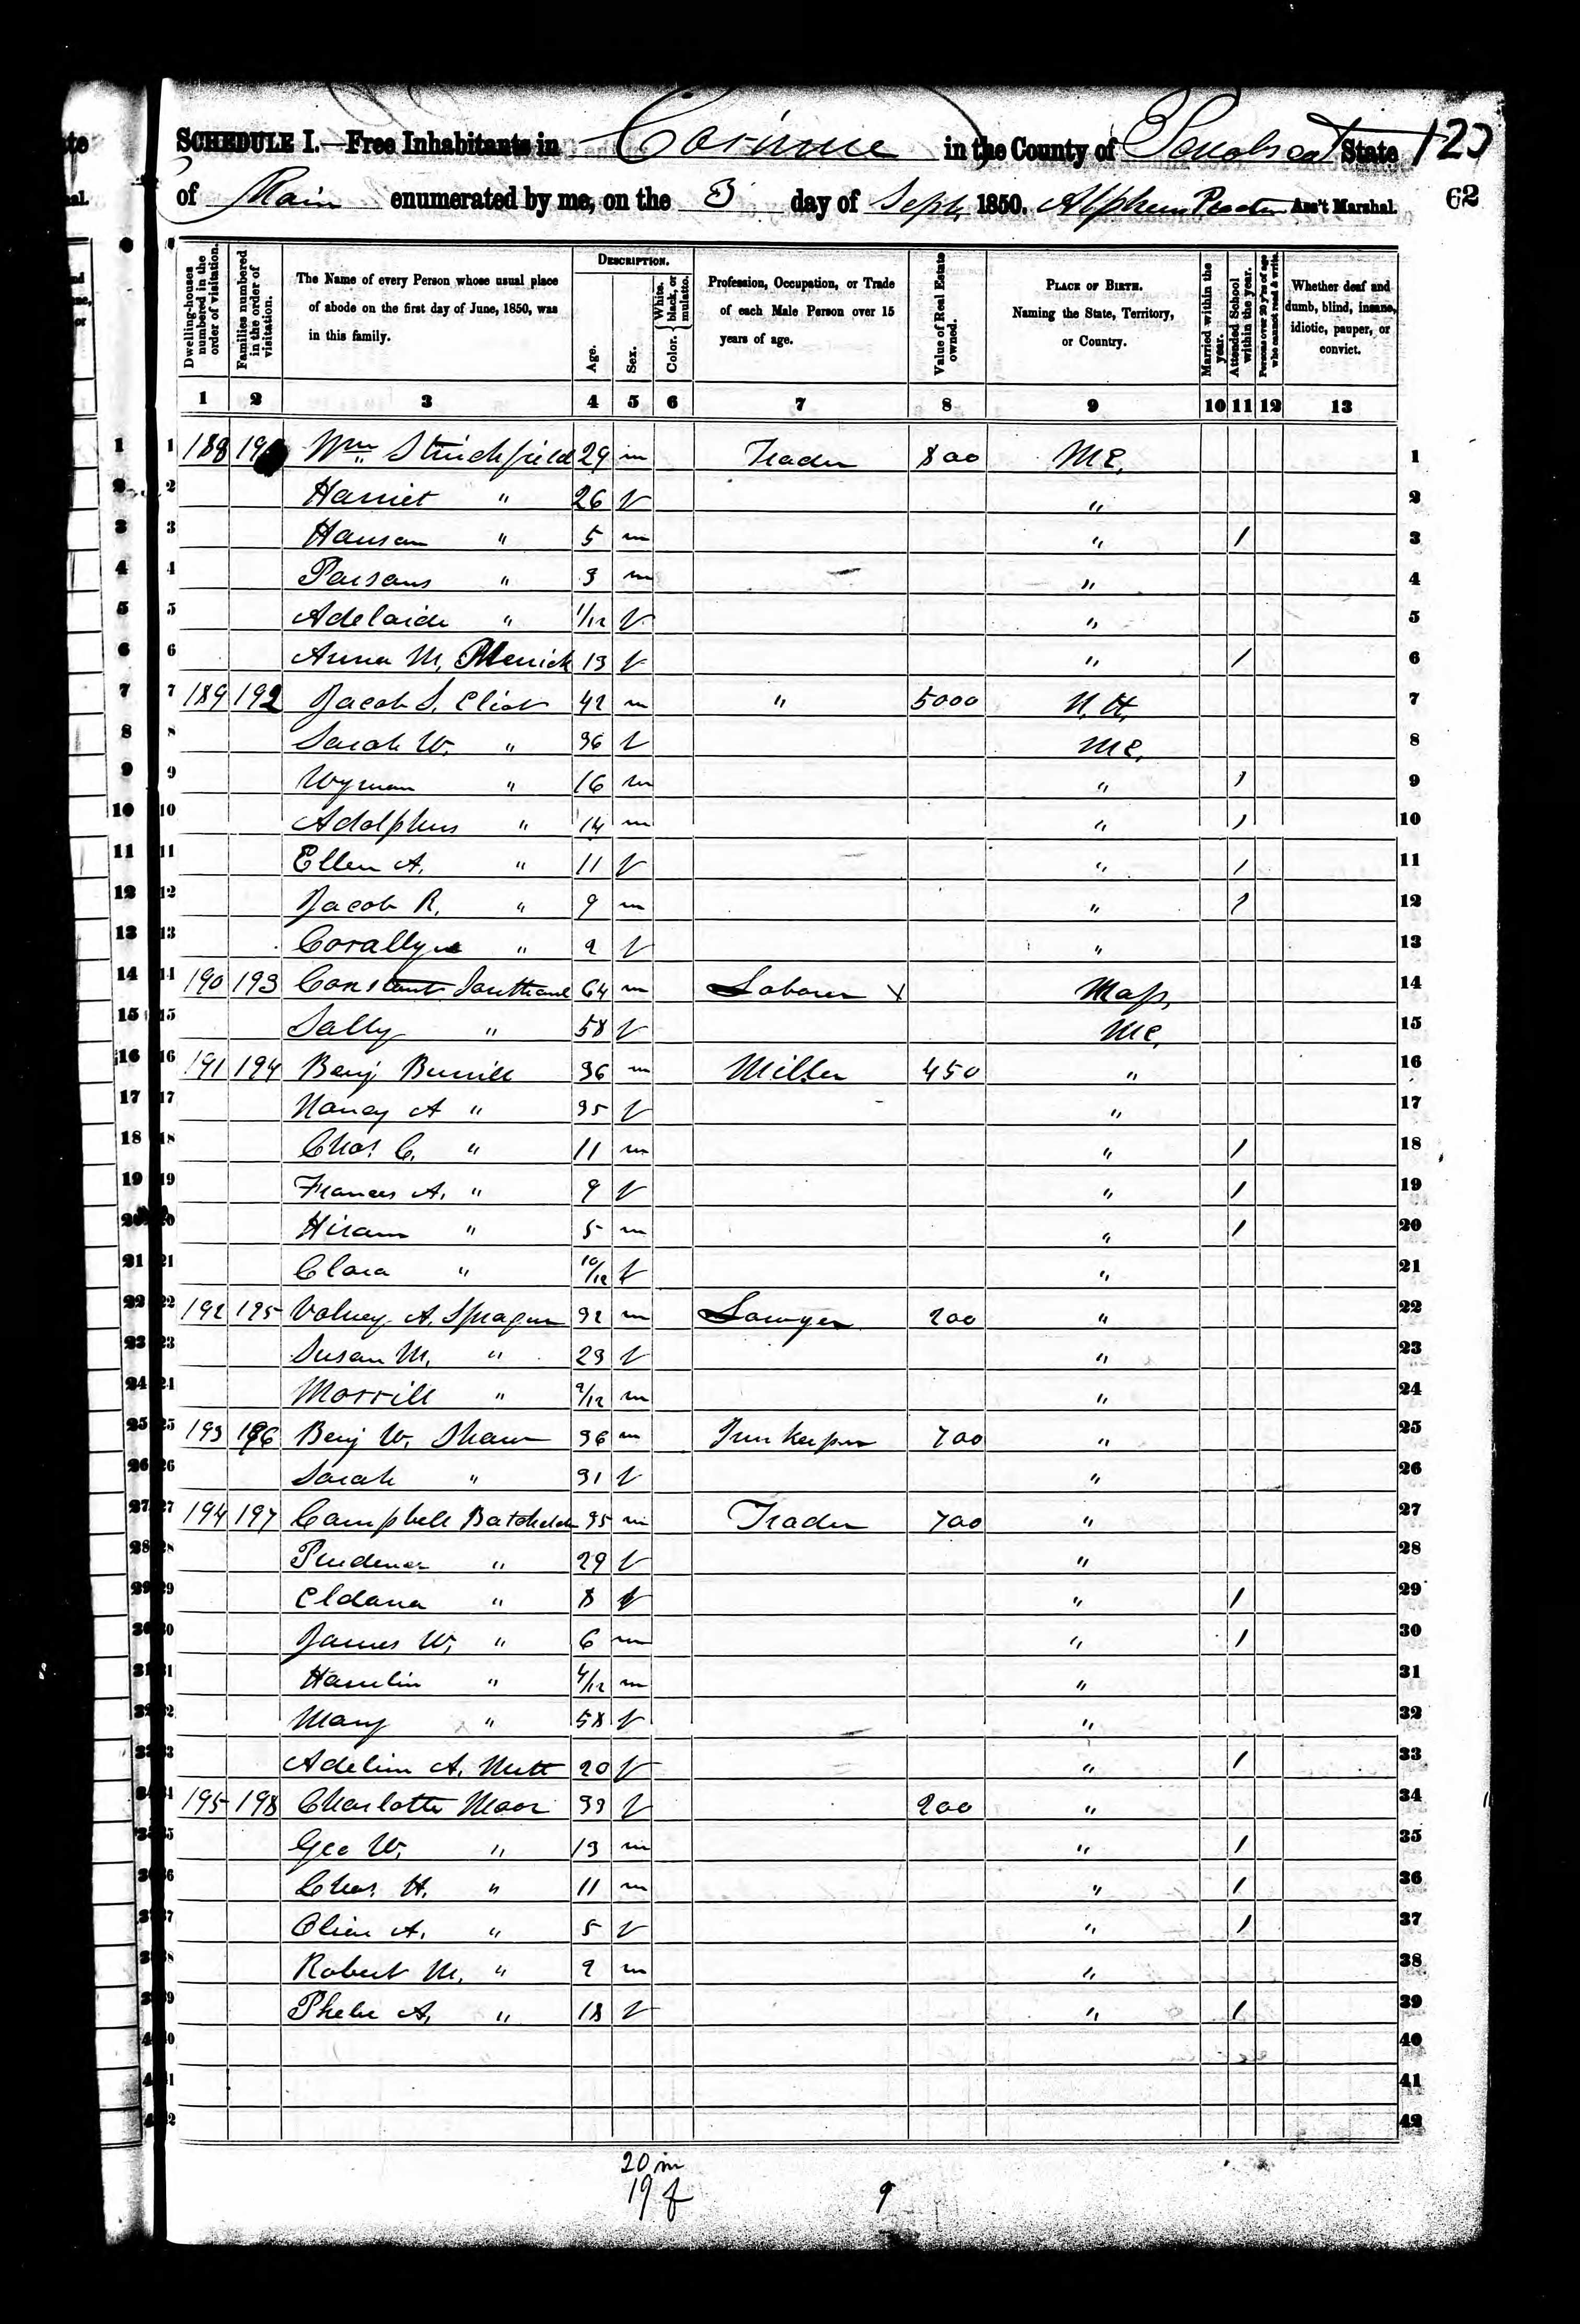 SCHEDULE I.—Free Inhabitants in Corinna in the County of Penobscot State 123
of Main enumerated by me, on the 3 day of Sept. 1850. Alpheus Ass't Marshal. 62
Dwelling-houses numbered in the order of visitation.
Families numbered in the order of visitation.
The Name of every Person whose usual place of abode on the first day of June, 1850, was in this family.
DESCRIPTION.
Age.
Sex.
Color. { White, black, or mulatto.
Profession, Occupation, or Trade of each Male Person over 15 years of age.
Value of Real Estate owned.
PLACE OF BIRTH. Naming the State, Territory, or Country.
Married within the year.
Attended School within the year.
Persons over 20 y'rs of age who cannot read & write.
Whether deaf and dumb, blind, insane, idiotic, pauper, or convict.
1 2 3 4 5 6 7 8 9 10 11 12 13
1 188 19 Wm Stinchfield 29 m Trader 800 ME. 1
2 Harriet " 26 f " 2
3 Hanson " 5 m " 1 3
4 Parsons " 3 m " 4
5 Adelaide " 1/12 f " 5
6 Anna M. 13 f " 1 6
7 189 192 Jacob S. Eliot 42 m " 5000 N.H. 7
8 Sarah W. " 36 f ME. 8
9 Wyman " 16 m " 1 9
10 Adolphus " 14 m " 1 10
11 Ellen A. " 11 f " 1 11
12 Jacob R. " 9 m " 1 12
13 " 2 f " 13
14 190 193 Constant Southard 64 m Laborer X Mass. 14
15 Sally " 58 f ME. 15
16 191 194 Benj Burrill 36 m Miller 450 " 16
17 Nancy A " 35 f " 17
18 Chas. C. " 11 m " 1 18
19 Frances A. " 9 f " 1 19
20 Hiram " 5 m " 1 20
21 Clara " 10/12 f " 21
22 192 195 Volney A. Sprague 32 m Lawyer 200 " 22
23 Susan M. " 23 f " 23
24 Morrill " 2/12 m " 24
25 193 196 Benj W. Shaw 36 m Inn keeper 700 " 25
26 Sarah " 31 f " 26
27 194 197 Campbell Batchelder 35 m Trader 700 " 27
28 Prudence " 29 f " 28
29 Eldana " 8 f " 1 29
30 James W. " 6 m " 1 30
31 Hamlin " 4/12 m " 31
32 Mary " 58 f " 32
33 Adeline A. Nutt 20 f " 1 33
34 195 198 Charlotte Moor 33 f 200 " 34
35 Geo W. " 13 m " 1 35
36 Chas. H. " 11 m " 1 36
37 Olive A. " 5 f " 1 37
38 Robert M. " 2 m " 38
39 Phebe A. " 18 f " 1 39
40 40
41 41
42 42
20 m
19 f 9